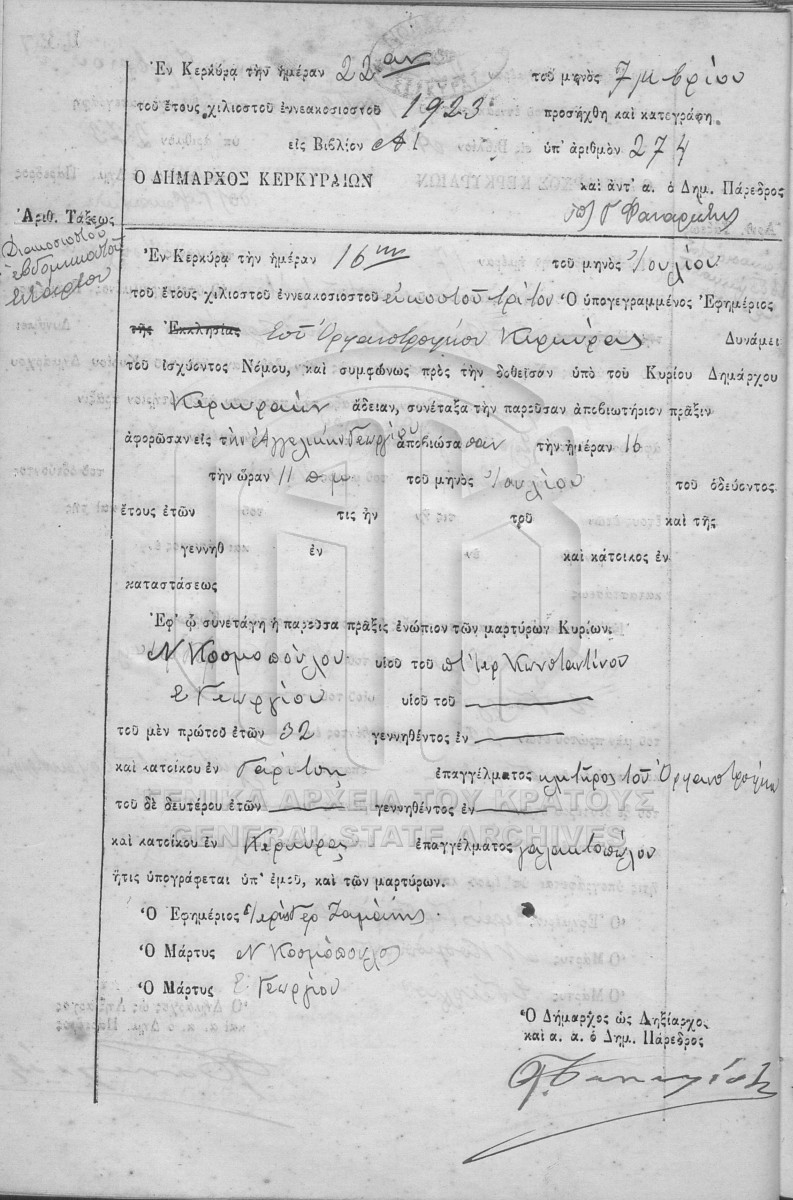 Ἐν Κερκύρᾳ τὴν ἡμέραν 22αν τοῦ μηνὸς 7μβρίου
τοῦ ἔτους χιλιοστοῦ ἐννεακοσιοστοῦ 1923 προσήχθη καὶ κατεγράφη
εἰς Βιβλίον Α1 ὑπ' ἀριθμὸν 274
Ο ΔΗΜΑΡΧΟΣ ΚΕΡΚΥΡΑΙΩΝ καὶ ἀντ' α. ὁ Δημ. Πάρεδρος
Ἀριθ. Τάξεως
Διακοσιοστοῦ
ἑβδομηκοστοῦ
τετάρτου
Ἐν Κερκύρᾳ τὴν ἡμέραν 16ην τοῦ μηνὸς Ἰουλίου
τοῦ ἔτους χιλιοστοῦ ἐννεακοσιοστοῦ εἰκοστοῦ τρίτου Ὁ ὑπογεγραμμένος Ἐφημέριος
τῆς Ἐκκλησίας τοῦ Ὀρφανοτροφείου Κερκύρας Δυνάμει
τοῦ ἰσχύοντος Νόμου, καὶ συμφώνως πρὸς τὴν δοθεῖσαν ὑπὸ τοῦ Κυρίου Δημάρχου
Κερκυραίων ἄδειαν, συνέταξα τὴν παροῦσαν ἀποβιωτήριον πρᾶξιν
ἀφορῶσαν εἰς τὴν Ἀγγελικὴν Γεωργίου ἀποβιώσασαν τὴν ἡμέραν 16
τὴν ὥραν 11 π μ τοῦ μηνὸς Ἰουλίου τοῦ ὁδεύοντος
ἔτους ἐτῶν τις ἦν τοῦ καὶ τῆς
γεννηθ ἐν καὶ κάτοικος ἐν
καταστάσεως
Ἐφ' ᾧ συνετάγη ἡ παροῦσα πρᾶξις ἐνώπιον τῶν μαρτύρων Κυρίων.
Ν Κοσμοπούλου υἱοῦ τοῦ Κωνσταντίνου
Ε Γεωργίου υἱοῦ τοῦ
τοῦ μὲν πρώτου ἐτῶν 32 γεννηθέντος ἐν
καὶ κατοίκου ἐν Γαρίτσῃ ἐπαγγέλματος κλητῆρος τοῦ Ὀρφανοτροφείου
τοῦ δὲ δευτέρου ἐτῶν γεννηθέντος ἐν
ΓΕΝΙΚΑ ΑΡΧΕΙΑ ΤΟΥ ΚΡΑΤΟΥΣ
GENERAL STATE ARCHIVES
καὶ κατοίκου ἐν Κερκύρας ἐπαγγέλματος γαλακτοπώλου
ἥτις ὑπογράφεται ὑπ' ἐμοῦ, καὶ τῶν μαρτύρων.
Ὁ Ἐφημέριος
Ὁ Μάρτυς Ν Κοσμόπουλος
Ὁ Μάρτυς Ε Γεωργίου
Ὁ Δήμαρχος ὡς Ληξίαρχος
καὶ α. α. ὁ Δημ. Πάρεδρος